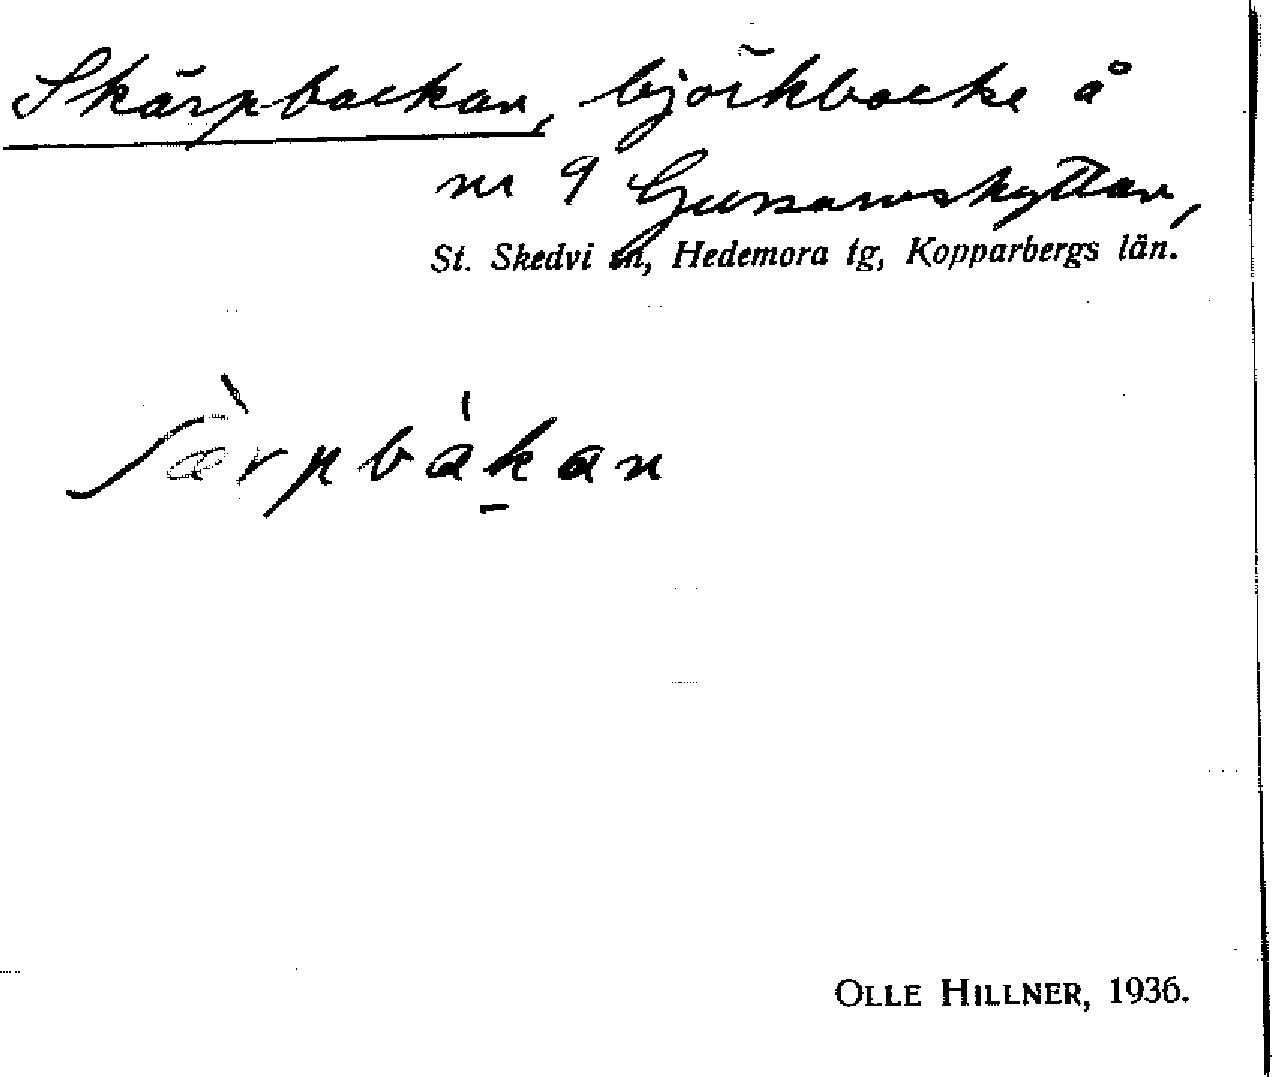 Skärpbackan, björkbacke å
nr 9 Gussarvshyttan,
St. Skedvi sn, Hedemora tg, Kopparbergs län.
ʃæ̀rpbákan
OLLE HILLNER, 1936.